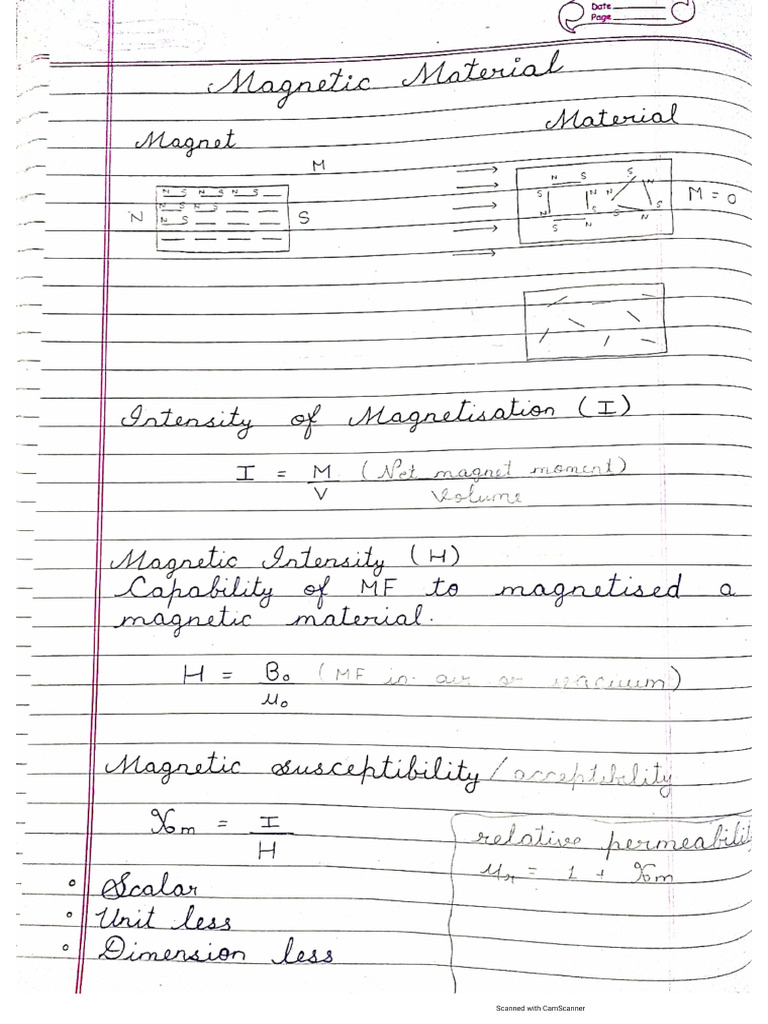 Date
Page
Magnetic Material
Magnet
Material
M
N S N S N S
N S N S
N S
N
S
N S
S
N N N
S
N
S
N
S
N
S
S N
M = 0
Intensity of Magnetisation (I)
I = M (Net magnet moment)
V Volume
Magnetic Intensity (H)
Capability of MF to magnetised a
magnetic material.
H = B₀ (MF in air or vacuum)
μ₀
Magnetic susceptibility / acceptibility
χm = I
H
relative permeabilit
μr = 1 + χm
Scalar
Unit less
Dimension less
Scanned with CamScanner